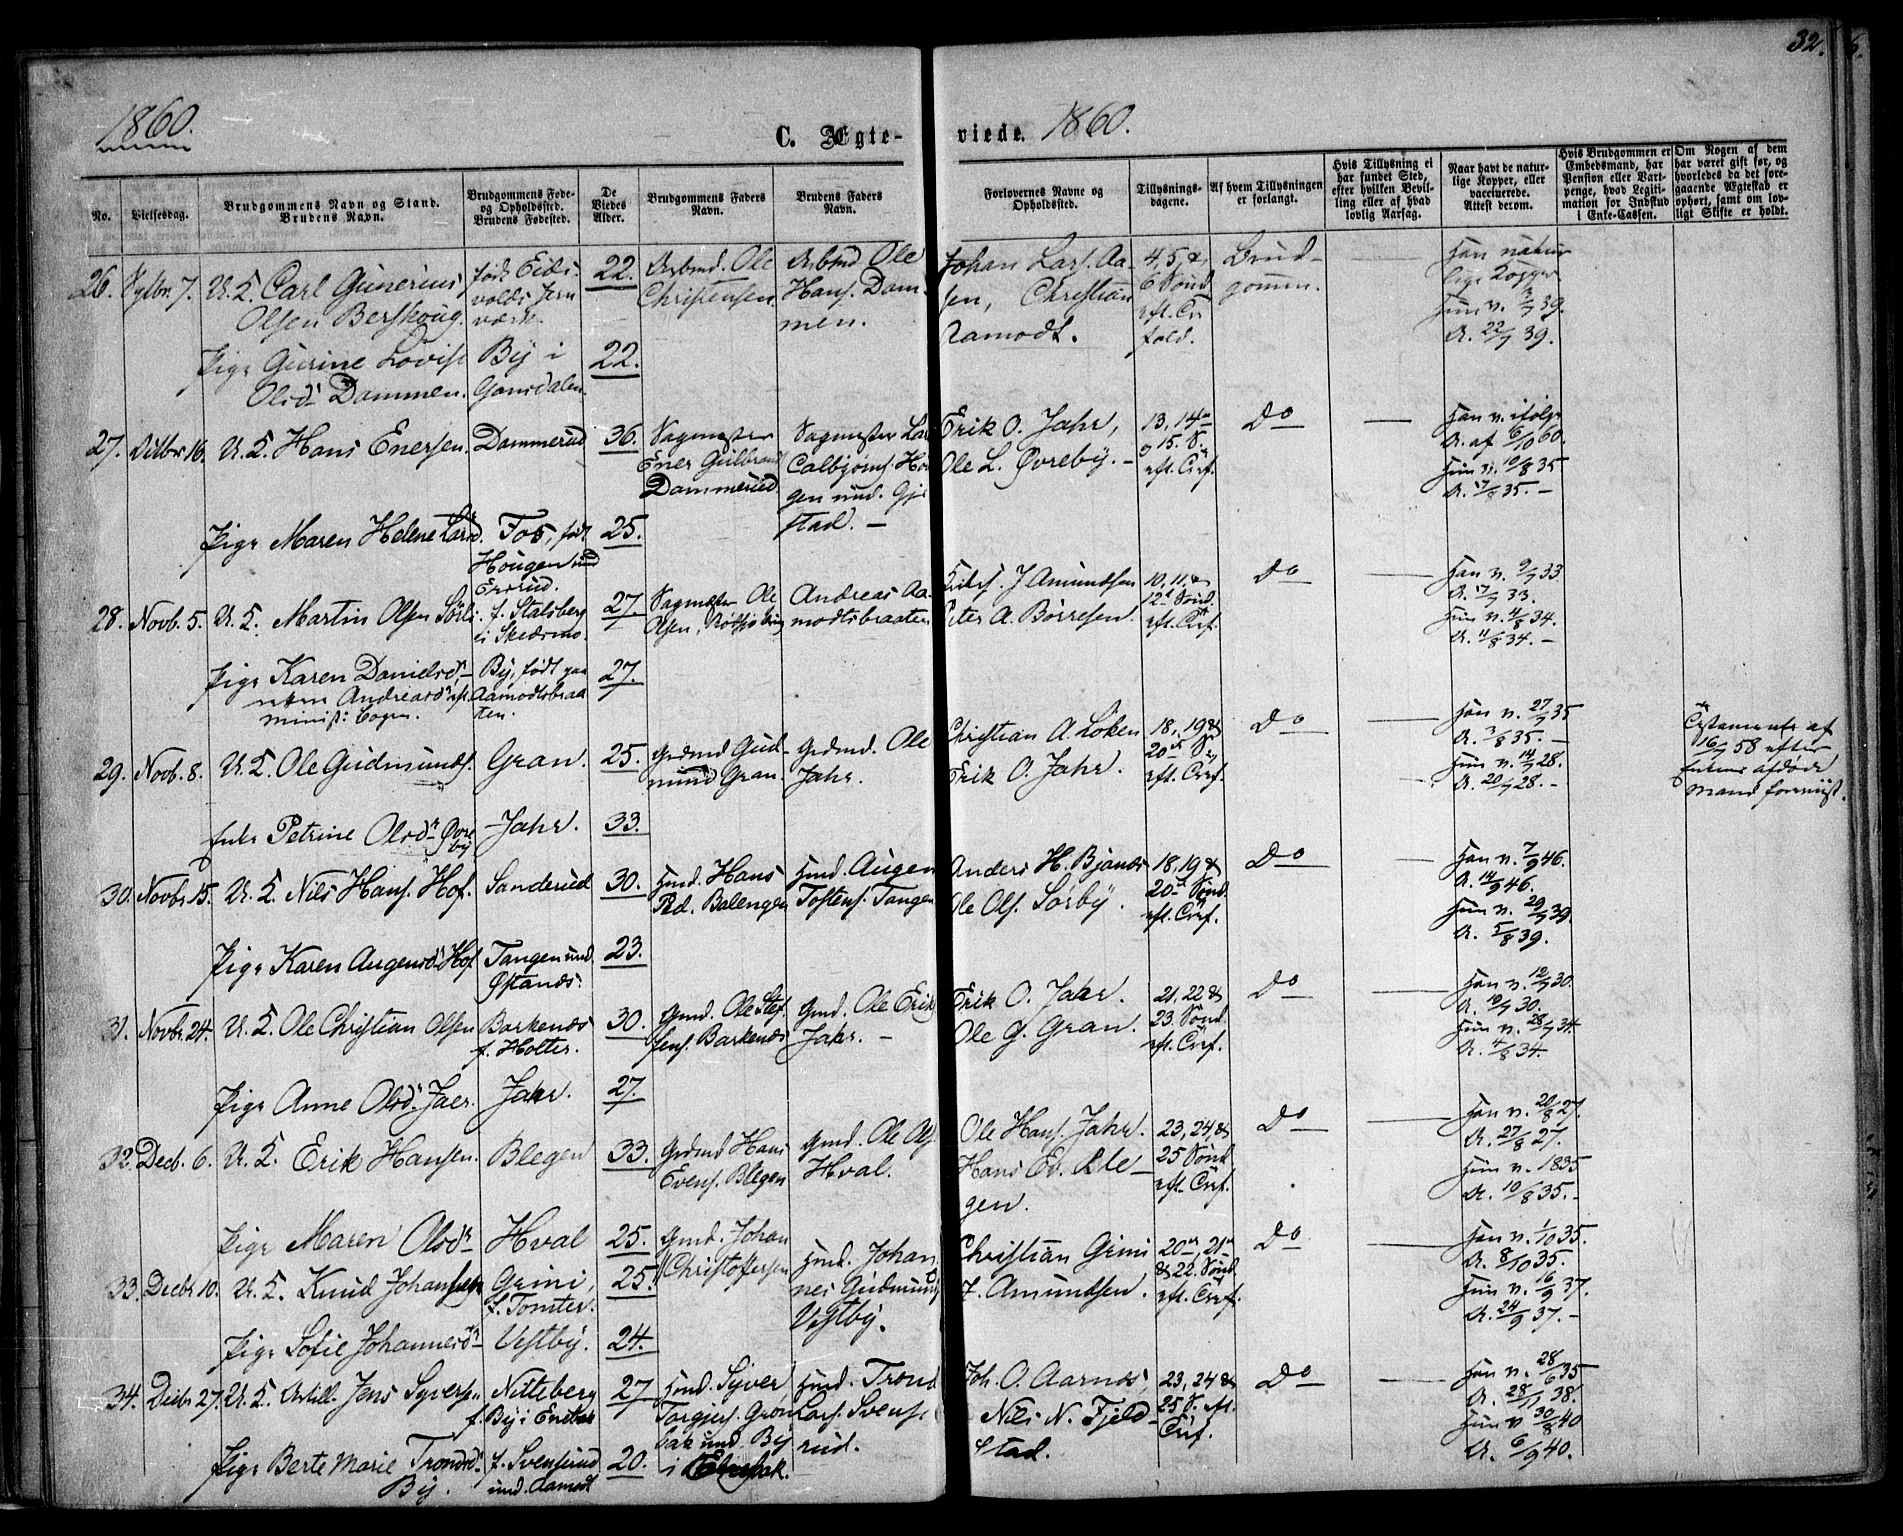 32.
1860.
C. Ægte-
viede.
1860.
No.
Vielsesdag.
Brudgommens Navn og Stand.
Brudens Navn.
Brudgommens Føde-
og Opholdssted.
Brudens Fødested.
De
Viedes
Alder.
Brudgommens Faders
Navn.
Brudens Faders
Navn.
Forlovernes Navne og
Opholdssted.
Tillysnings-
dagene.
Af hvem Tillysningen
er forlangt.
Hvis Tillysning ei
har fundet Sted,
efter hvilken Bevil-
ling eller af hvad
lovlig Aarsag.
Naar havt de natur-
lige Kopper, eller
vaccinerede.
Attest derom.
Hvis Brudgommen er
Embedsmand, har
Pension eller Vart-
penge, hvad Legiti-
mation for Indskud
i Enke-Cassen.
Om Nogen af dem
har været gift før, og
hvorledes da det fore-
gaaende Ægteskab er
ophørt, samt om lov-
ligt Skifte er holdt.
26. 7. U. K. Carl Gunerius
Olsen Berskoug.
født Eids-
volds Jern
værk.
22.
Ole
Christensen
Ole
Hans. Dam-
men.
Johan Lars. Aa-
sen, Christian
Aamodt.
4, 5, &
6 Sønd.
eft. Tr
fold.
Brud-
gommen.
Han natur
lige Kopper
Hun v. 39.
A. 22/7 39.
Pige Gurine Lovise
Olsd. Dammen.
By i
Gansdalen.
22.
27. Octbr 16. U. K. Hans Enersen. Dammerud 36.
Sagmester
Ener Gulbrand
Dammerud
Sagmester Lars
Calbjørns. Hou
gen und. Gje
stad. -
Erik O. Jahr,
Ole L. Øvreby. -
13, 14de
& 15. S.
eft. Tref.
Do
Han v. ifølge
A. af 6/10 60.
Hun v. 10/8 35
A. 17/8 35. -
Pige Maren Helene Larsd. Fos, født
Hougen und
25.
28. Novb. 5. U. K. Martin Olsen Sørli f. Stalsberg
i Skedsmo.
27
Sagmester Ole
Olsen,
Andreas Aa-
modtsbraaten
J Amundsen
Peter A. Børresen.
10, 11. &
12te Sønd.
eft. Tref.
Do
Han v. 9/7 33.
A. 17/7 33.
Hun v. 4/8 34.
A. 11/8 34. -
Pige Karen Danielsd.
Andreasd. eft.
minist: Bogen.
By, født paa
Aamodtsbraa
ten.
27.
29. Novb. 8. U. K. Ole Gudmunds. Gran. 25.
Grdmd Gud-
mund Gran
Grdmd. Ole
Jahr.
Christian A. Løken
Erik O. Jahr.
18, 19 &
20de S.
eft. Tref.
Do
Han v. 27/7 35
A. 3/8 35. -
Hun v. 14/7 28.
A. 20/7 28. -
Testamente af
16/ 58 efter
Enkens afdøde
Mand forevist.
Enke Petrine Olsd. Øvre
by
Jahr. 33.
30. Novbr. 15. U. K. Nils Hans. Hof. Sanderud 30.
Hmd. Hans
Pd. Balengen
Hmd. Augen
Tostens. Tangen
Anders H. Bjanes
Ole Ols. Sørby.
18, 19 &
20de Sønd.
eft. Tref.
Do
Han v. 7/9 46.
A. 14/9 46.
Hun v. 29/7 39.
A. 5/8 39.
Pige Karen Augensd. Hof. Tangen und.
23.
31. Novbr. 24. U. K. Ole Christian Olsen Barkenæs
f. Holter.
30.
Gmd. Ole Stef
fens. Barkenæs
Gmd. Ole Eriks
Jahr. -
Erik O. Jahr.
Ole G. Gran.
21, 22 &
23. Sønd.
eft. Tref.
Do
Han v. 12/7 30.
A. 19/7 30.
Hun v. 28/7 34.
A. 4/8 34.
Pige Anne Olsd. Jaer. Jahr. 27.
32. Decb. 6. U. K. Erik Hansen. Blegen 33.
Grdmd Hans
Evens. Blegen
Gmd. Ole Ols
Hval.
Ole Hans. Jahr.
Hans Ev. Ble-
gen.
23, 24, &
25 Sønd
eft. Tref.
Do
Han v. 20/8 27.
A. 27/8 27.
Hun v. 1835
A. 10/8 35. -
Pige Maren Olsd. Hval 25.
33. Decbr. 10. U. K. Knud Johansen Grini,
f. Tomter.
25.
Gmd. Johan
Christofersen
Hmd. Johan
nes Gudmunds
Vestby.
Christian Grini
J. Amundsen.
20de, 21de
& 22. Sønd.
eft. Tref.
Do
Han v. 1/10 35.
A. 8/10 35.
Hun v. 16/9 37.
A. 24/9 37. -
Pige Sofie Johannesd. Vestby. 24.
34. Decbr 27. U. K. Arbd. Jens Syversen Nitteberg
f. By i Enebak
27
Hmd. Syver
Torgjers. Grøn
bak und. By
i Enebak.
Hmd. Trond
Lars. Svens
rud.
Joh. O. Aarnes,
Nils N. Fjeld-
stad.
23, 24 &
25 S. eft.
Tref.
Do
Han v. 28/6 35
A. 28/11 38.
Hun v 30/8 40
A. 6/9 40.
Pige Berte Marie Trondsd.
By.
f. Svensrud
und. Aamodt
20.